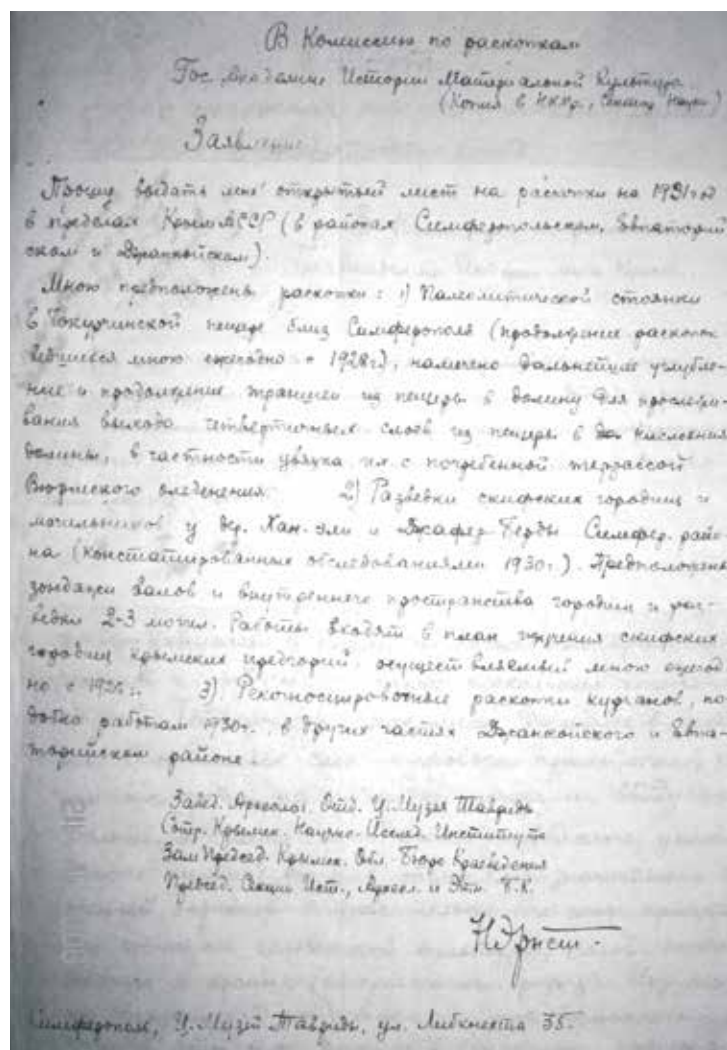 В Комиссию по раскопкам
Гос. Академии Истории Материальной Культуры
(Копия в НКПр., Секцию Науки)
Заявление
Прошу выдать мне открытый лист на раскопки на 1931 год
в пределах Крым АССР (в районах Симферопольском, Евпаторий
ском и Джанкойском).
Мною предположены раскопки: 1) Палеолитической стоянки
в Чокурчинской пещере близ Симферополя (продолжение раскопок
ведшихся мною ежегодно с 1928 г.), намечено дальнейшее углубле-
ние и продолжение траншеи из пещеры в долину для прослежи-
вания выхода четвертичных слоев из пещеры в низменния
долины, в частности увязка их с погребенной террассой
Вюрмского оледенения. 2) Разведки скифских городищ и
могильников у дер. Хан-эли и Джафер-Берды Симфер. райо-
на (констатированных обследованиями 1930 г.). Предположены
зондажи валов и внутреннего пространства городищ и раз-
ведки 2-3 могил. Работы входят в план изучения скифских
городищ крымских предгорий, осуществляемый мною ежегод
но с 1926 г. 3) Рекогносцировочные раскопки курганов, по
добно работам 1930 г., в других частях Джанкойского и Евпа-
торийском районе
Завед. Археолог. Отд. Ц. Музея Тавриды
Сотр. Крымск. Научно-Исслед. Института
Зам Председ. Крымск. Обл. Бюро Краеведения
Председ. Секции Ист., Археол. и Этн. Б.К.
НЭрнст
Симферополь, Ц. Музей Тавриды, ул. Либкнехта 35.